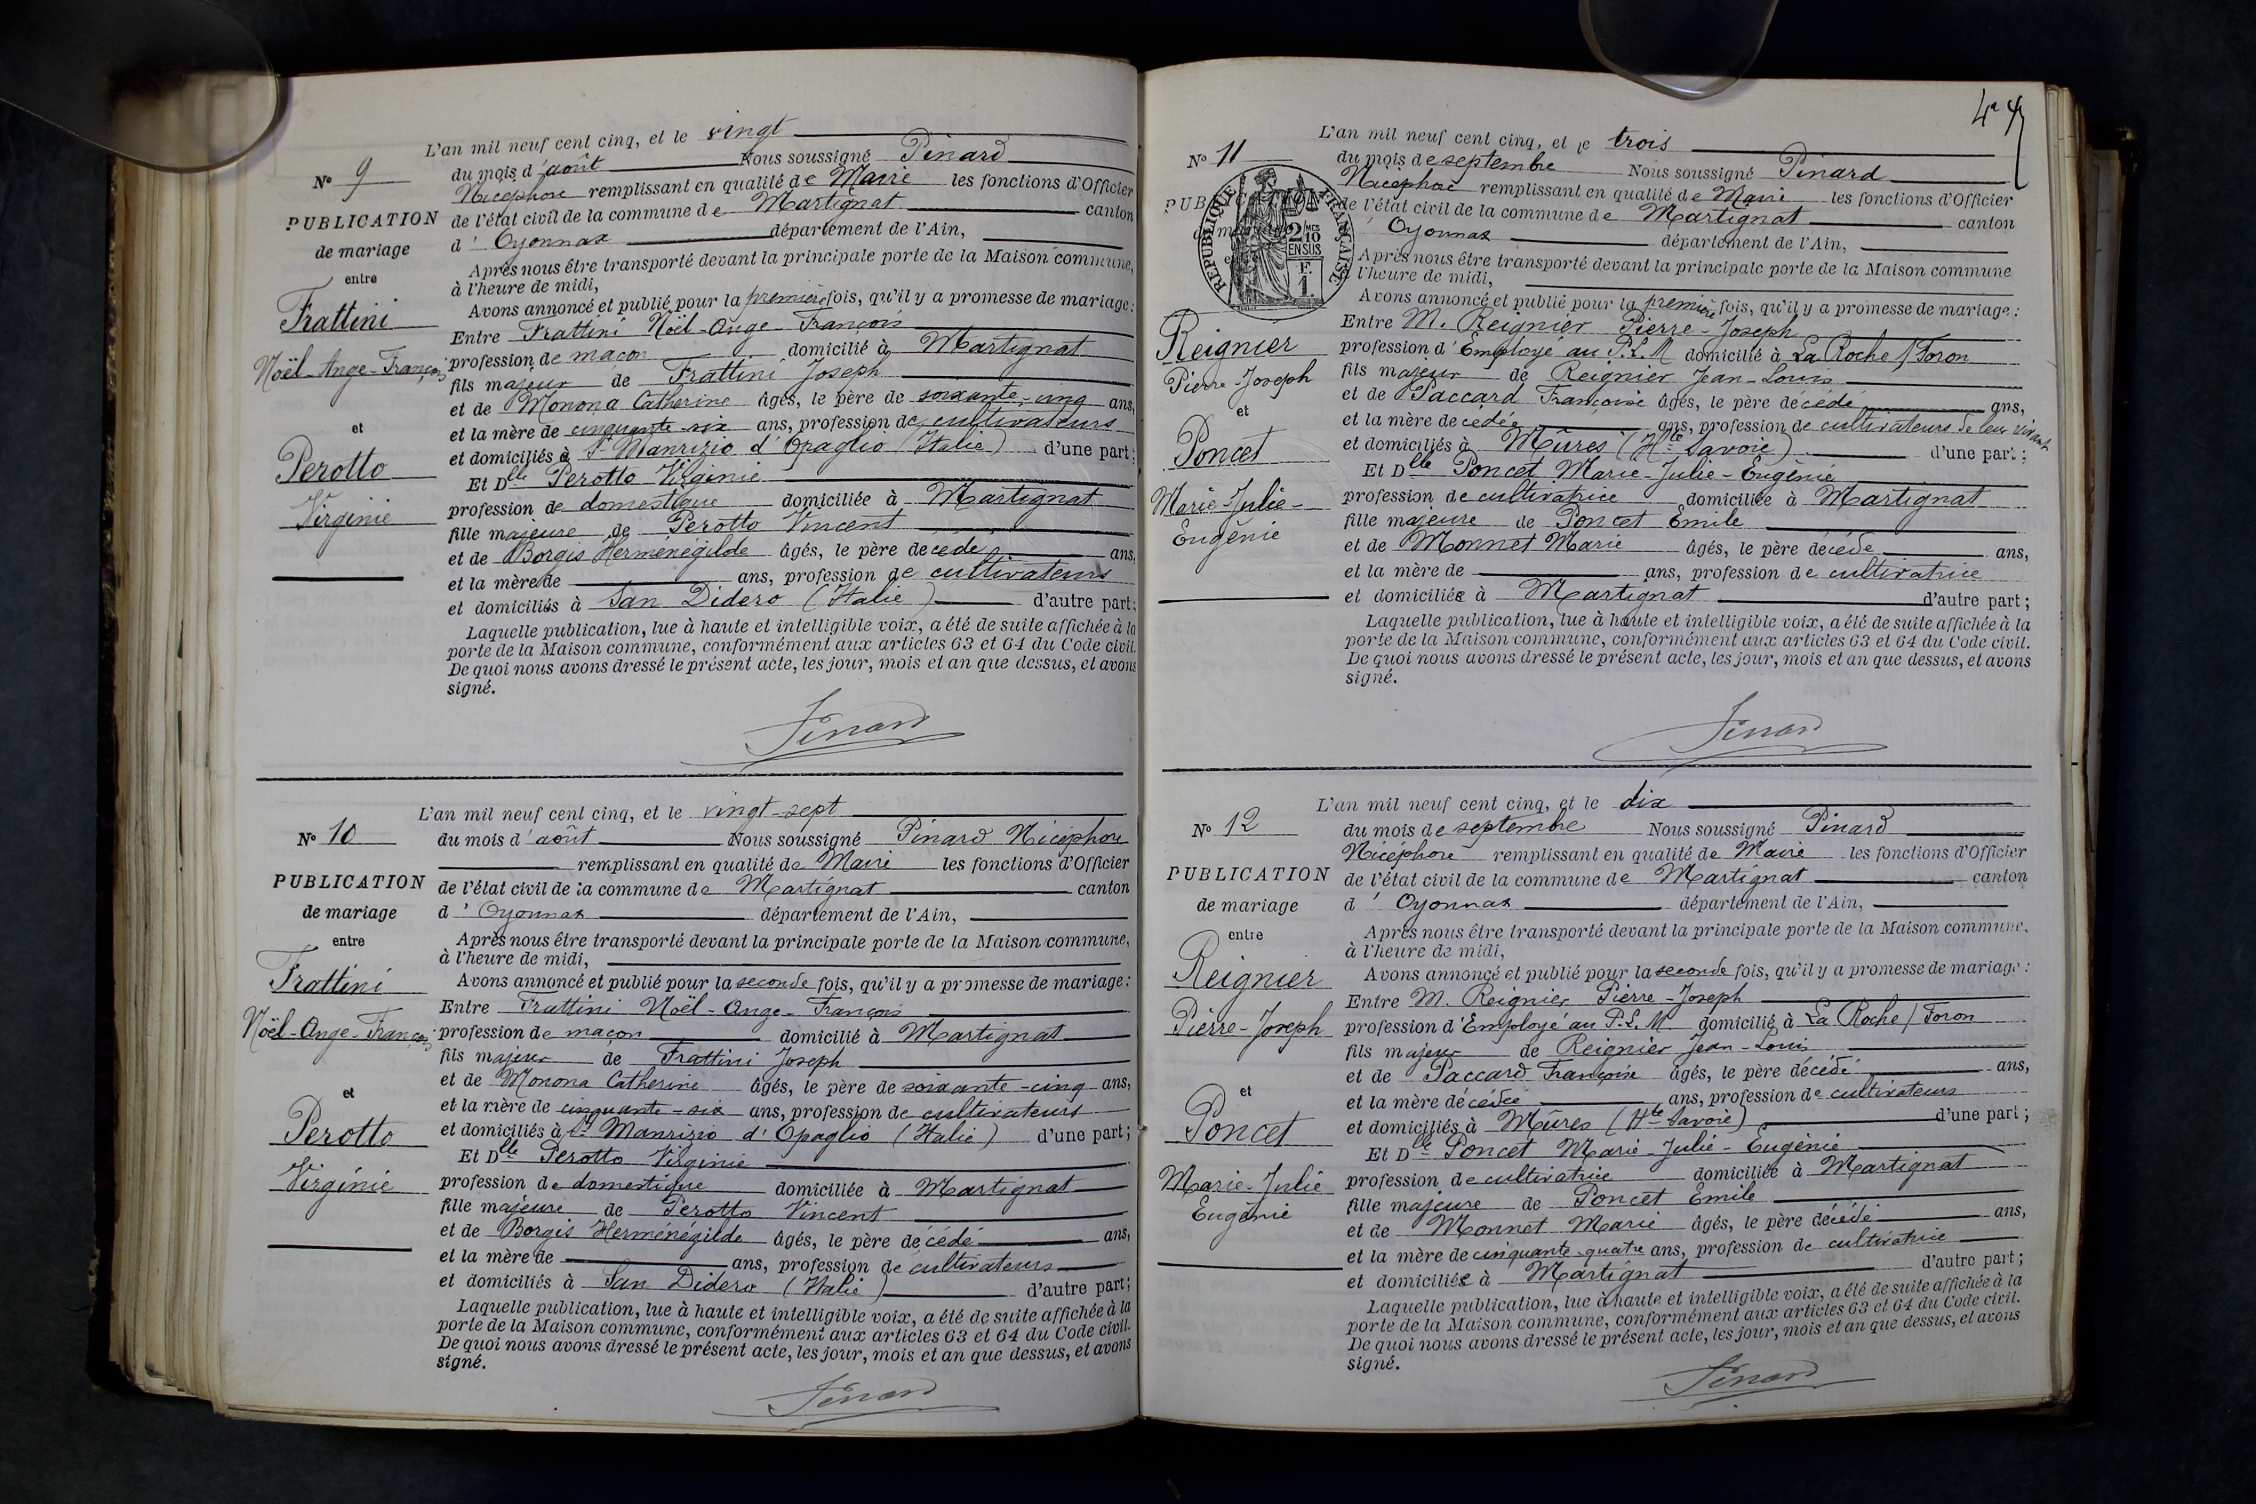 L'an mil neuf cent cinq, et le vingt
Nº 9
du mois d'août Nous soussigné Pinard
Nicéphore remplissant en qualité de Maire les fonctions d'Officier
PUBLICATION
de l'état civil de la commune de Martignat canton
de mariage
d'Oyonnax département de l'Ain,
entre
Après nous être transporté devant la principale porte de la Maison commune,
à l'heure de midi,
Avons annoncé et publié pour la première fois, qu'il y a promesse de mariage:
Frattini
Entre Frattini Noël-Ange-François
Noël-Ange-François
profession de maçon domicilié à Martignat
fils majeur de Frattini Joseph
et de Monona Catherine âgés, le père de soixante-cinq ans,
et
et la mère de cinquante-six ans, profession de cultivateurs
et domiciliés à St Manrizio d'Opaglio (Italie) d'une part;
Perotto
Et Dlle Perotto Virginie
Virginie
profession de domestique domiciliée à Martignat
fille majeure de Perotto Vincent
et de Borgis Herménégilde âgés, le père décédé ans,
et la mère de ans, profession de cultivateurs
et domiciliés à San Didero (Italie) d'autre part;
Laquelle publication, lue à haute et intelligible voix, a été de suite affichée à la
porte de la Maison commune, conformément aux articles 63 et 64 du Code civil.
De quoi nous avons dressé le présent acte, les jour, mois et an que dessus, et avons
signé.
Pinard
L'an mil neuf cent cinq, et le vingt-sept
Nº 10
du mois d'août Nous soussigné Pinard Nicéphore
remplissant en qualité de Maire les fonctions d'Officier
PUBLICATION
de l'état civil de la commune de Martignat canton
de mariage
d'Oyonnax département de l'Ain,
entre
Après nous être transporté devant la principale porte de la Maison commune,
à l'heure de midi,
Frattini
Avons annoncé et publié pour la seconde fois, qu'il y a promesse de mariage:
Entre Frattini Noël-Ange-François
Noël-Ange-François
profession de maçon domicilié à Martignat
fils majeur de Frattini Joseph
et de Monona Catherine âgés, le père de soixante-cinq ans,
et
et la mère de cinquante-six ans, profession de cultivateurs
Perotto
et domiciliés à St Manrizio d'Opaglio (Italie) d'une part;
Et Dlle Perotto Virginie
Virginie
profession de domestique domiciliée à Martignat
fille majeure de Perotto Vincent
et de Borgis Herménégilde âgés, le père décédé ans,
et la mère de ans, profession de cultivateurs
et domiciliés à San Didero (Italie) d'autre part;
Laquelle publication, lue à haute et intelligible voix, a été de suite affichée à la
porte de la Maison commune, conformément aux articles 63 et 64 du Code civil.
De quoi nous avons dressé le présent acte, les jour, mois et an que dessus, et avons
signé.
Pinard
L'an mil neuf cent cinq, et le trois
Nº 11
du mois de septembre Nous soussigné Pinard
Nicéphore remplissant en qualité de Maire les fonctions d'Officier
PUB
de l'état civil de la commune de Martignat canton
RÉPUBLIQUE FRANÇAISE
2/10 MES
EN SUS
F.
1.
d'Oyonnax département de l'Ain,
Après nous être transporté devant la principale porte de la Maison commune
l'heure de midi,
Avons annoncé et publié pour la première fois, qu'il y a promesse de mariage:
Entre M. Reignier Pierre-Joseph
Reignier
profession d'Employé au P.L.M domicilié à La Roche s/Foron
Pierre-Joseph
fils majeur de Reignier Jean-Louis
et de Paccard Françoise âgés, le père décédé ans,
et
et la mère décédée ans, profession de cultivateurs de leur vivant
Poncet
et domiciliés à Mûres (Hte Savoie) d'une part;
Et Dlle Poncet Marie-Julie-Eugénie
Marie-Julie-
profession de cultivatrice domiciliée à Martignat
Eugénie
fille majeure de Poncet Emile
et de Monnet Marie âgés, le père décédé ans,
et la mère de ans, profession de cultivatrice
et domiciliée à Martignat d'autre part;
Laquelle publication, lue à haute et intelligible voix, a été de suite affichée à la
porte de la Maison commune, conformément aux articles 63 et 64 du Code civil.
De quoi nous avons dressé le présent acte, les jour, mois et an que dessus, et avons
signé.
Pinard
L'an mil neuf cent cinq, et le dix
Nº 12
du mois de septembre Nous soussigné Pinard
Nicéphore remplissant en qualité de Maire les fonctions d'Officier
PUBLICATION
de l'état civil de la commune de Martignat canton
de mariage
d'Oyonnax département de l'Ain,
entre
Après nous être transporté devant la principale porte de la Maison commune,
à l'heure de midi,
Reignier
Avons annoncé et publié pour la seconde fois, qu'il y a promesse de mariage:
Entre M. Reignier Pierre-Joseph
Pierre-Joseph
profession d'Employé au P.L.M. domicilié à La Roche s/Foron
fils majeur de Reignier Jean-Louis
et de Paccard Françoise âgés, le père décédé ans,
et
et la mère décédée ans, profession de cultivateurs
Poncet
et domiciliés à Mûres (Hte Savoie) d'une part;
Et Dlle Poncet Marie-Julie-Eugénie
Marie-Julie
profession de cultivatrice domiciliée à Martignat
Eugénie
fille majeure de Poncet Emile
et de Monnet Marie âgés, le père décédé ans,
et la mère de cinquante-quatre ans, profession de cultivatrice
et domiciliée à Martignat d'autre part;
Laquelle publication, lue à haute et intelligible voix, a été de suite affichée à la
porte de la Maison commune, conformément aux articles 63 et 64 du Code civil.
De quoi nous avons dressé le présent acte, les jour, mois et an que dessus, et avons
signé.
Pinard